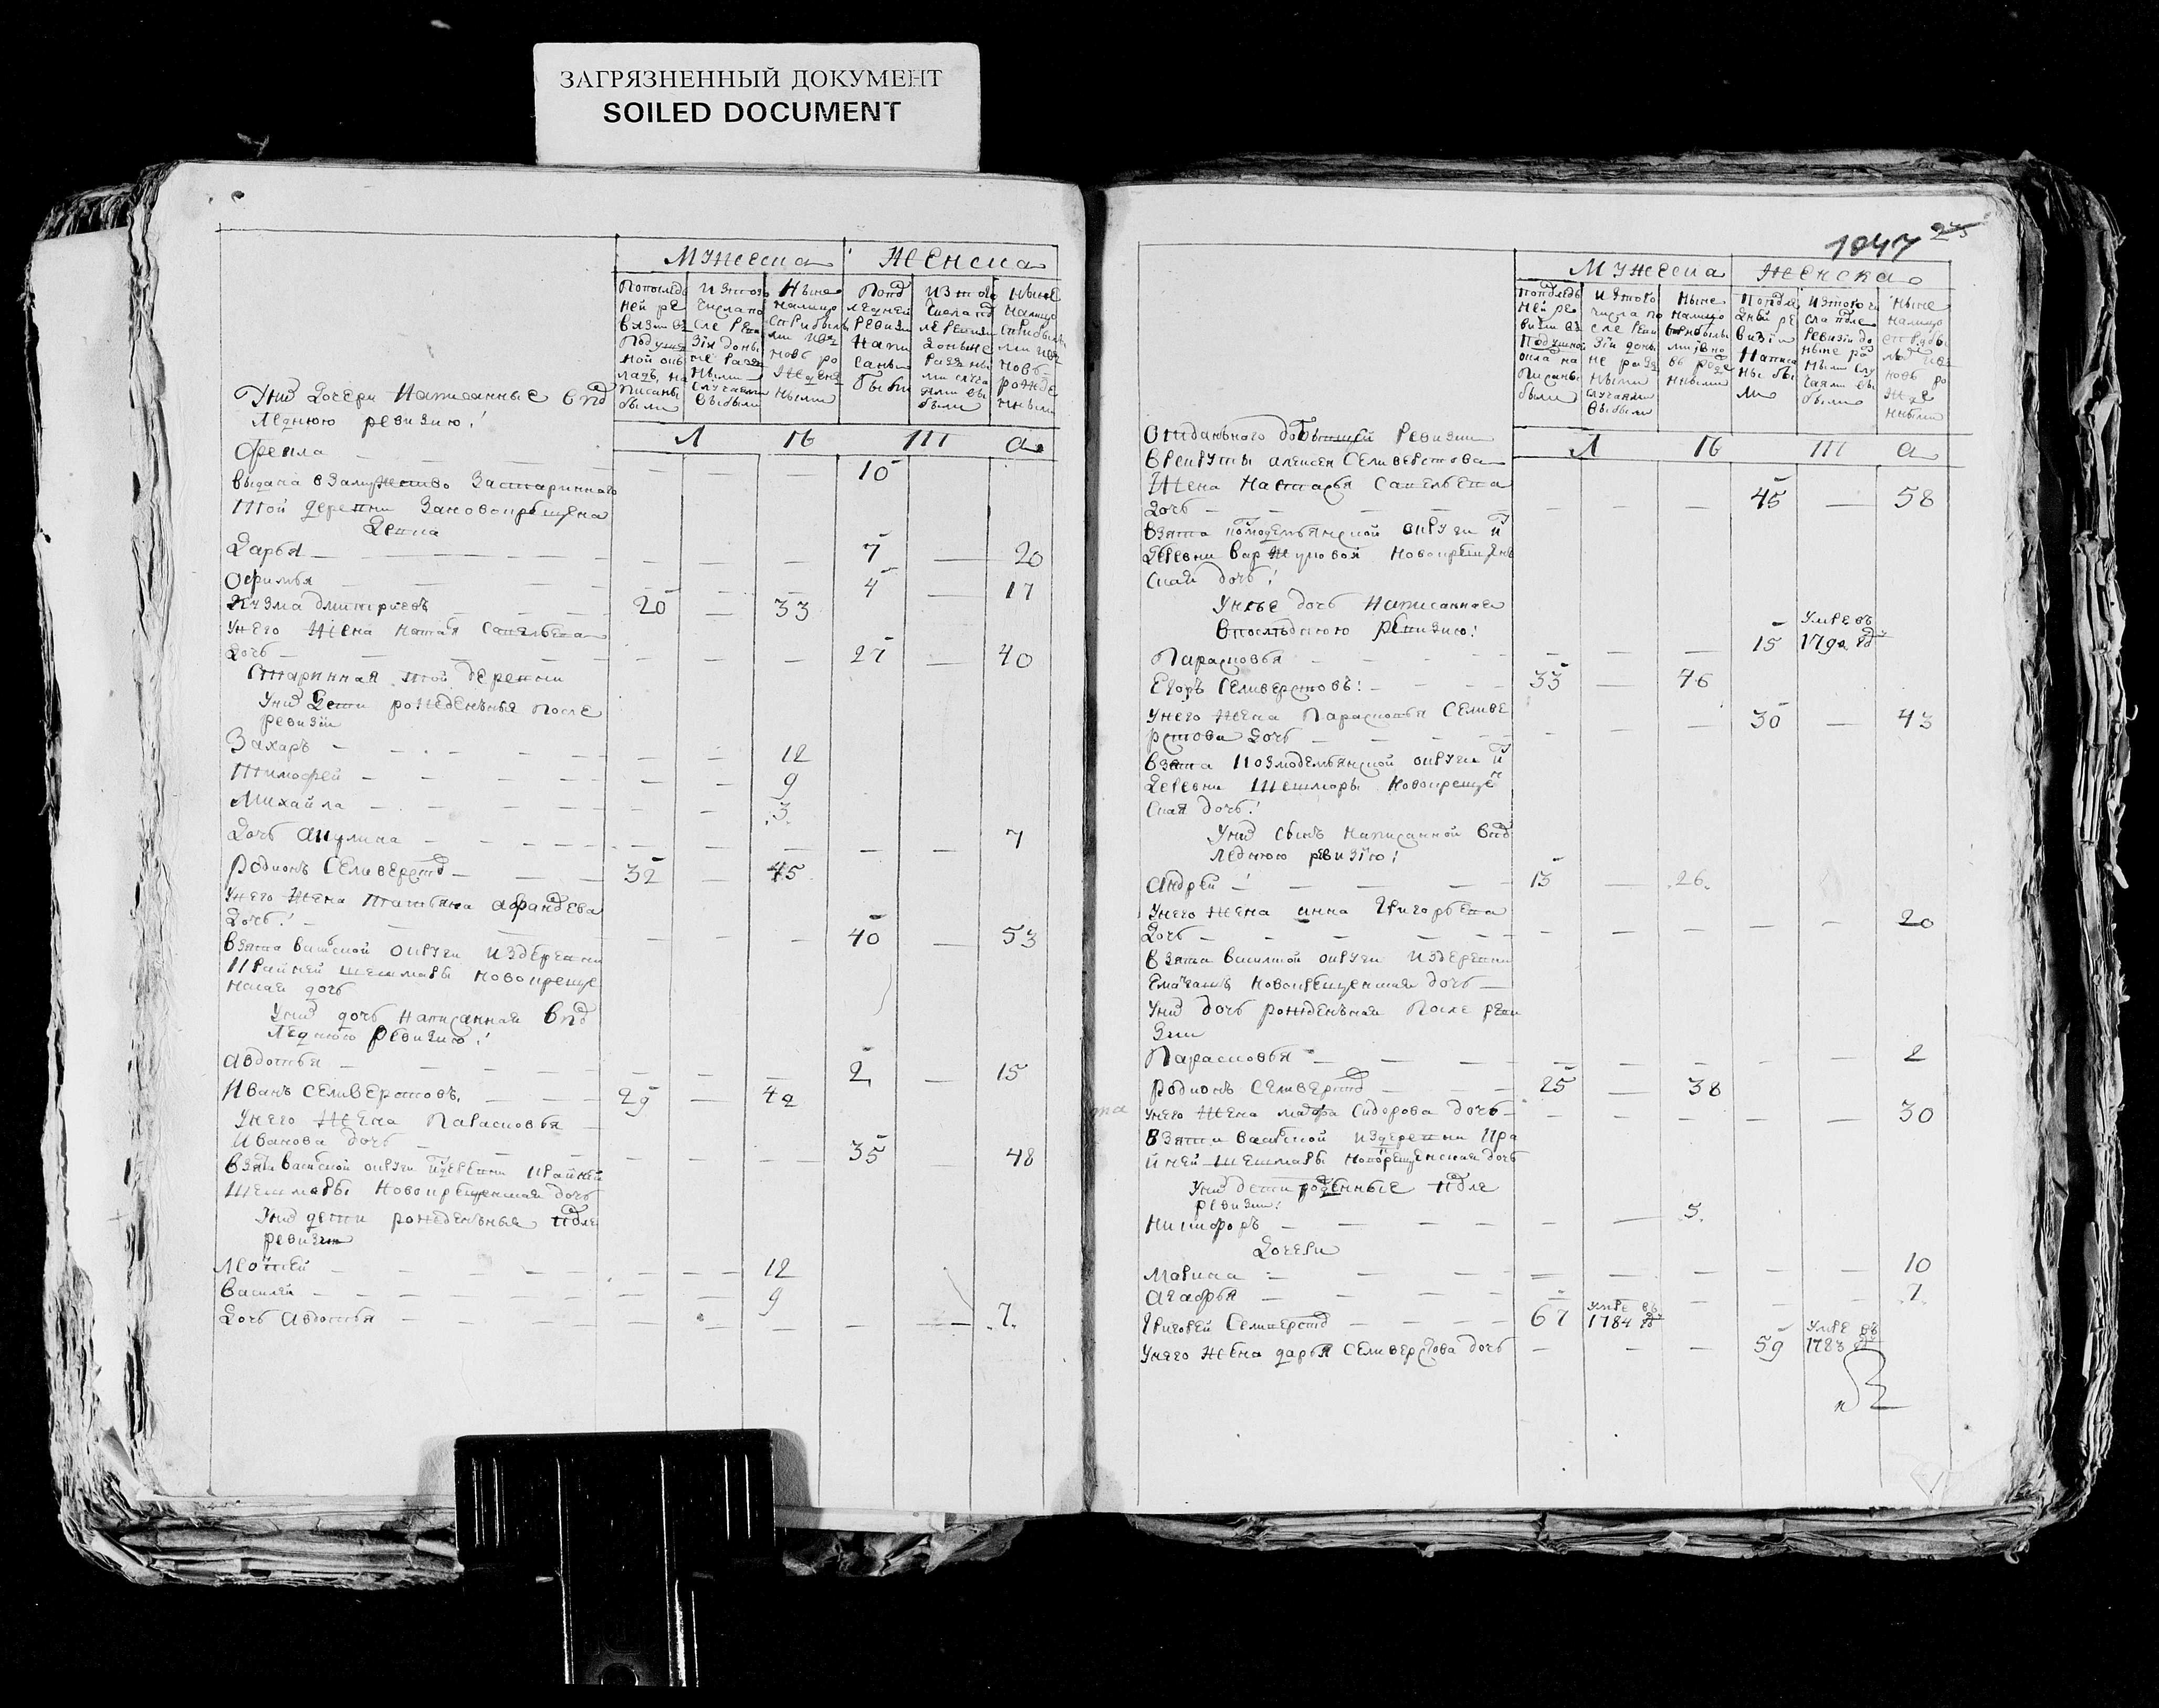 ЗАГРЯЗНЕННЫЙ ДОКУМЕНТ
SOILED DOCUMENT
Мужеска Женска
По последней ревизии въ подушной окладъ написаны были
Изъ того числа после ревизіи доныне разными случаями выбыли
Ныне налицо с прибылыми и вновь рожденными
По последней ревизии написаны были
Изъ того числа после ревизии доныне разными случаями выбыли
Ныне налицо с прибылыми и вновь рожденными
Л П Ш а
У них дочери написанные в последнюю ревизию!
Фекла — — 10
выдана в замужество за старинного
той деревни за новокрещена
Дарья — — — — 7 — 20
Офимья — — — 4 — 17
Кузма дмитриевъ — — 20 — 33
У него жена Савельева
дочь — — — — 27 — 40
старинная той деревни
У них дети рожденныя после
ревизіи
Захаръ — — — 12
Тимофей — — — 9
Михайла — — — 3
Дочь акулина — — — 7
Родионъ Селиверстов — — 32 — 45
У него жена татьяна
дочь! — — — 40 — 53
взята васильской округи из деревни
крайней шешмары новокреще
нская дочь
У них дочь написанная в пос
леднюю ревизию!
Авдотья — — — 2 — 15
Иванъ Селиверстовъ — — 29 — 42
У него жена Парасковья
Иванова дочь — — — 35 — 48
взята васильской округи из деревни крайней
Шешмары новокрещенская дочь
У них дети рожденныя после
ревизии
— — — 12
василей — — — 9
Дочь авдотья — — — 7
1047
Мужеска Женска
По последней ревизии въ подушной окладъ написаны были
Изъ того числа после ревизіи доныне разными случаями выбыли
Ныне налицо с прибылыми и вновь рожденными
По последней ревизіи написаны были
Изъ того числа после ревизіи доныне разными случаями выбыли
Ныне налицо с прибылыми и вновь рожденными
Л П Ш а
Отданного до бывшей ревизии
в рекруты алексея Селиверстова
Жена Настасья Савельева
дочь — — — 45 — 58
взята козмодемьянской округи из
деревни новокрещен
ская дочь!
У нее дочь написанная
в последнюю ревизию!
Парасковья — — — 15 умре въ
Егоръ Селиверстовъ! — 33 — 46
У него жена Парасковья Селиве
рстова дочь — — — 30 — 43
взята Козмодемьянской округи из
деревни Шешмары новокрещен
ская дочь!
У них сынъ написанной в пос
леднюю ревизію!
Андрей — — 13 — 26
У него жена анна Григорьева
дочь — — — — 20
взята васильской округи из деревни
новокрещенская дочь —
У них дочь рожденная после реви
зии
Парасковья — — — 2
Родионъ Селиверстов — 25 — 38
У него жена Сидорова дочь — — — 30
взята васильской из деревни кра
йней Шешмары новокрещенская дочь
У них дети рожденные после
ревизии!
Никифоръ — — — 5
Дочери
Марина — — — 10
Агафья — — — 7
Григорей Селиверстов — — 67 умре въ 1784 году
У него жена дарья Селиверстова дочь — — — 59 умре въ 1783 году